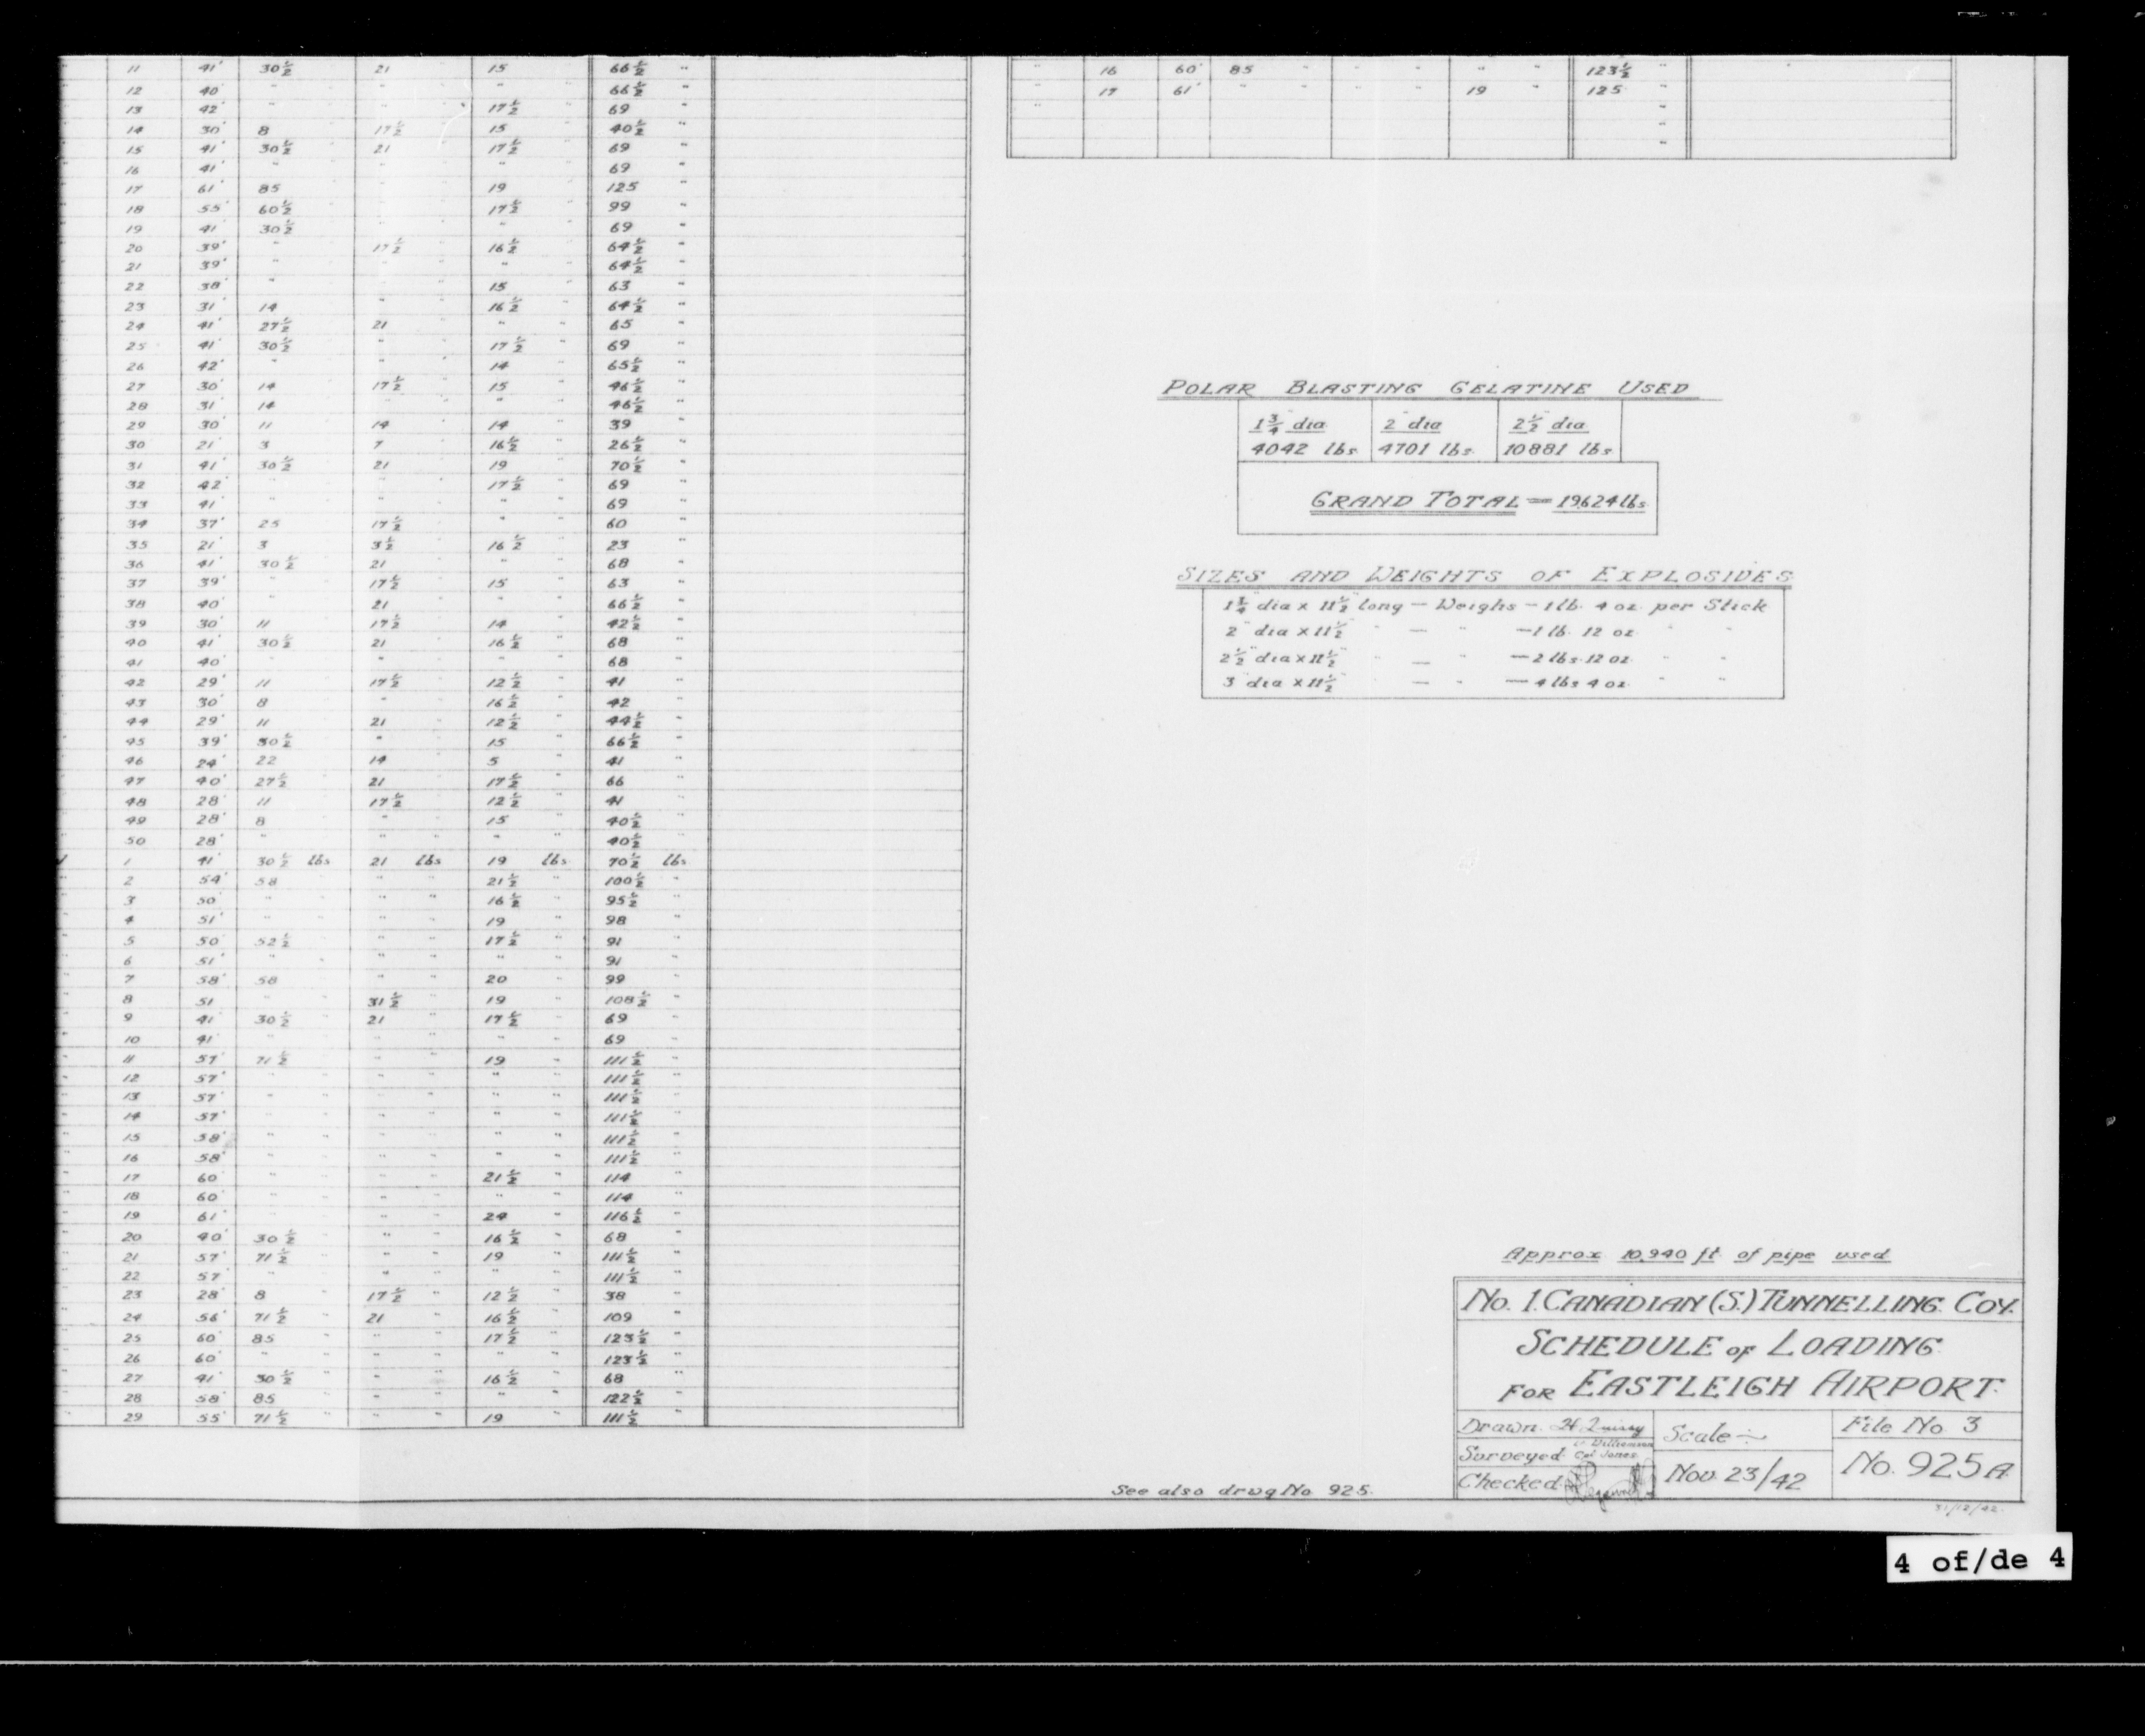 11 41' 30½ 21 15 66½ "
12 40' " " " 66½ "
13 42' " " 17½ 69 "
14 30' 8 17½ 15 40½ "
15 41' 30½ 21 17½ 69 "
16 41' " " " 69 "
17 61' 85 " 19 125 "
18 55' 60½ " 17½ 99 "
19 41' 30½ " " 69 "
20 39' " 17½ 16½ 64½ "
21 39' " " " 64½ "
22 38' " " 15 63 "
23 31' 14 " 16½ 64½ "
24 41' 27½ 21 " 65 "
25 41' 30½ " 17½ 69 "
26 42' " " 14 65½ "
27 30' 14 17½ 15 46½ "
28 31' 14 " " 46½ "
29 30' 11 14 14 39 "
30 21' 3 7 16½ 26½ "
31 41' 30½ 21 19 70½ "
32 42' " " 17½ 69 "
33 41' " " " 69 "
34 37' 25 17½ " 60 "
35 21' 3 3½ 16½ 23 "
36 41' 30½ 21 " 68 "
37 39' " 17½ 15 63 "
38 40' " 21 " 66½ "
39 30' 11 17½ 14 42½ "
40 41' 30½ 21 16½ 68 "
41 40' " " " 68 "
42 29' 11 17½ 12½ 41 "
43 30' 8 " 16½ 42 "
44 29' 11 21 12½ 44½ "
45 39' 30½ " 15 66½ "
46 24' 22 14 5 41 "
47 40' 27½ 21 17½ 66 "
48 28' 11 17½ 12½ 41 "
49 28' 8 " 15 40½ "
50 28' " " " 40½ "
1 41' 30½ lbs 21 lbs 19 lbs 70½ lbs
2 54' 58 " 21½ 100½ "
3 50' " " 16½ 95½ "
4 51' " " 19 98 "
5 50' 52½ " 17½ 91 "
6 51' " " " 91 "
7 58' 58 " 20 99 "
8 51' " 31½ 19 108½ "
9 41' 30½ 21 17½ 69 "
10 41' " " " 69 "
11 57' 71½ " 19 111½ "
12 57' " " " 111½ "
13 57' " " " 111½ "
14 57' " " " 111½ "
15 58' " " " 111½ "
16 58' " " " 111½ "
17 60' " " 21½ 114 "
18 60' " " " 114 "
19 61' " " 24 116½ "
20 40' 30½ " 16½ 68 "
21 57' 71½ " 19 111½ "
22 57' " " " 111½ "
23 28' 8 17½ 12½ 38 "
24 56' 71½ 21 16½ 109 "
25 60' 85 " 17½ 123½ "
26 60' " " " 123½ "
27 41' 30½ " 16½ 68 "
28 58' 85 " " 122½ "
29 55' 71½ " 19 111½ "
" 16 60' 85 " " " " " 123½ "
" 17 61' " " " " 19 " 125 "
POLAR BLASTING GELATINE USED
1¾" dia 2" dia 2½" dia
4042 lbs 4701 lbs 10881 lbs
GRAND TOTAL = 19,624 lbs
SIZES AND WEIGHTS OF EXPLOSIVES
1¾" dia x 11½" long — Weighs — 1 lb. 4 oz. per Stick
2" dia x 11½" " — " — 1 lb. 12 oz. " "
2½" dia x 11½" " — " — 2 lbs. 12 oz. " "
3" dia x 11½" " — " — 4 lbs 4 oz. " "
Approx 10,940 ft of pipe used
No. 1. CANADIAN (S.) TUNNELLING. COY.
SCHEDULE OF LOADING
FOR EASTLEIGH AIRPORT.
Drawn. Scale ~ File No 3
Surveyed Cpl Jones
Checked Nov. 23/42 No. 925A.
See also drwg No 925.
31/12/42
4 of/de 4